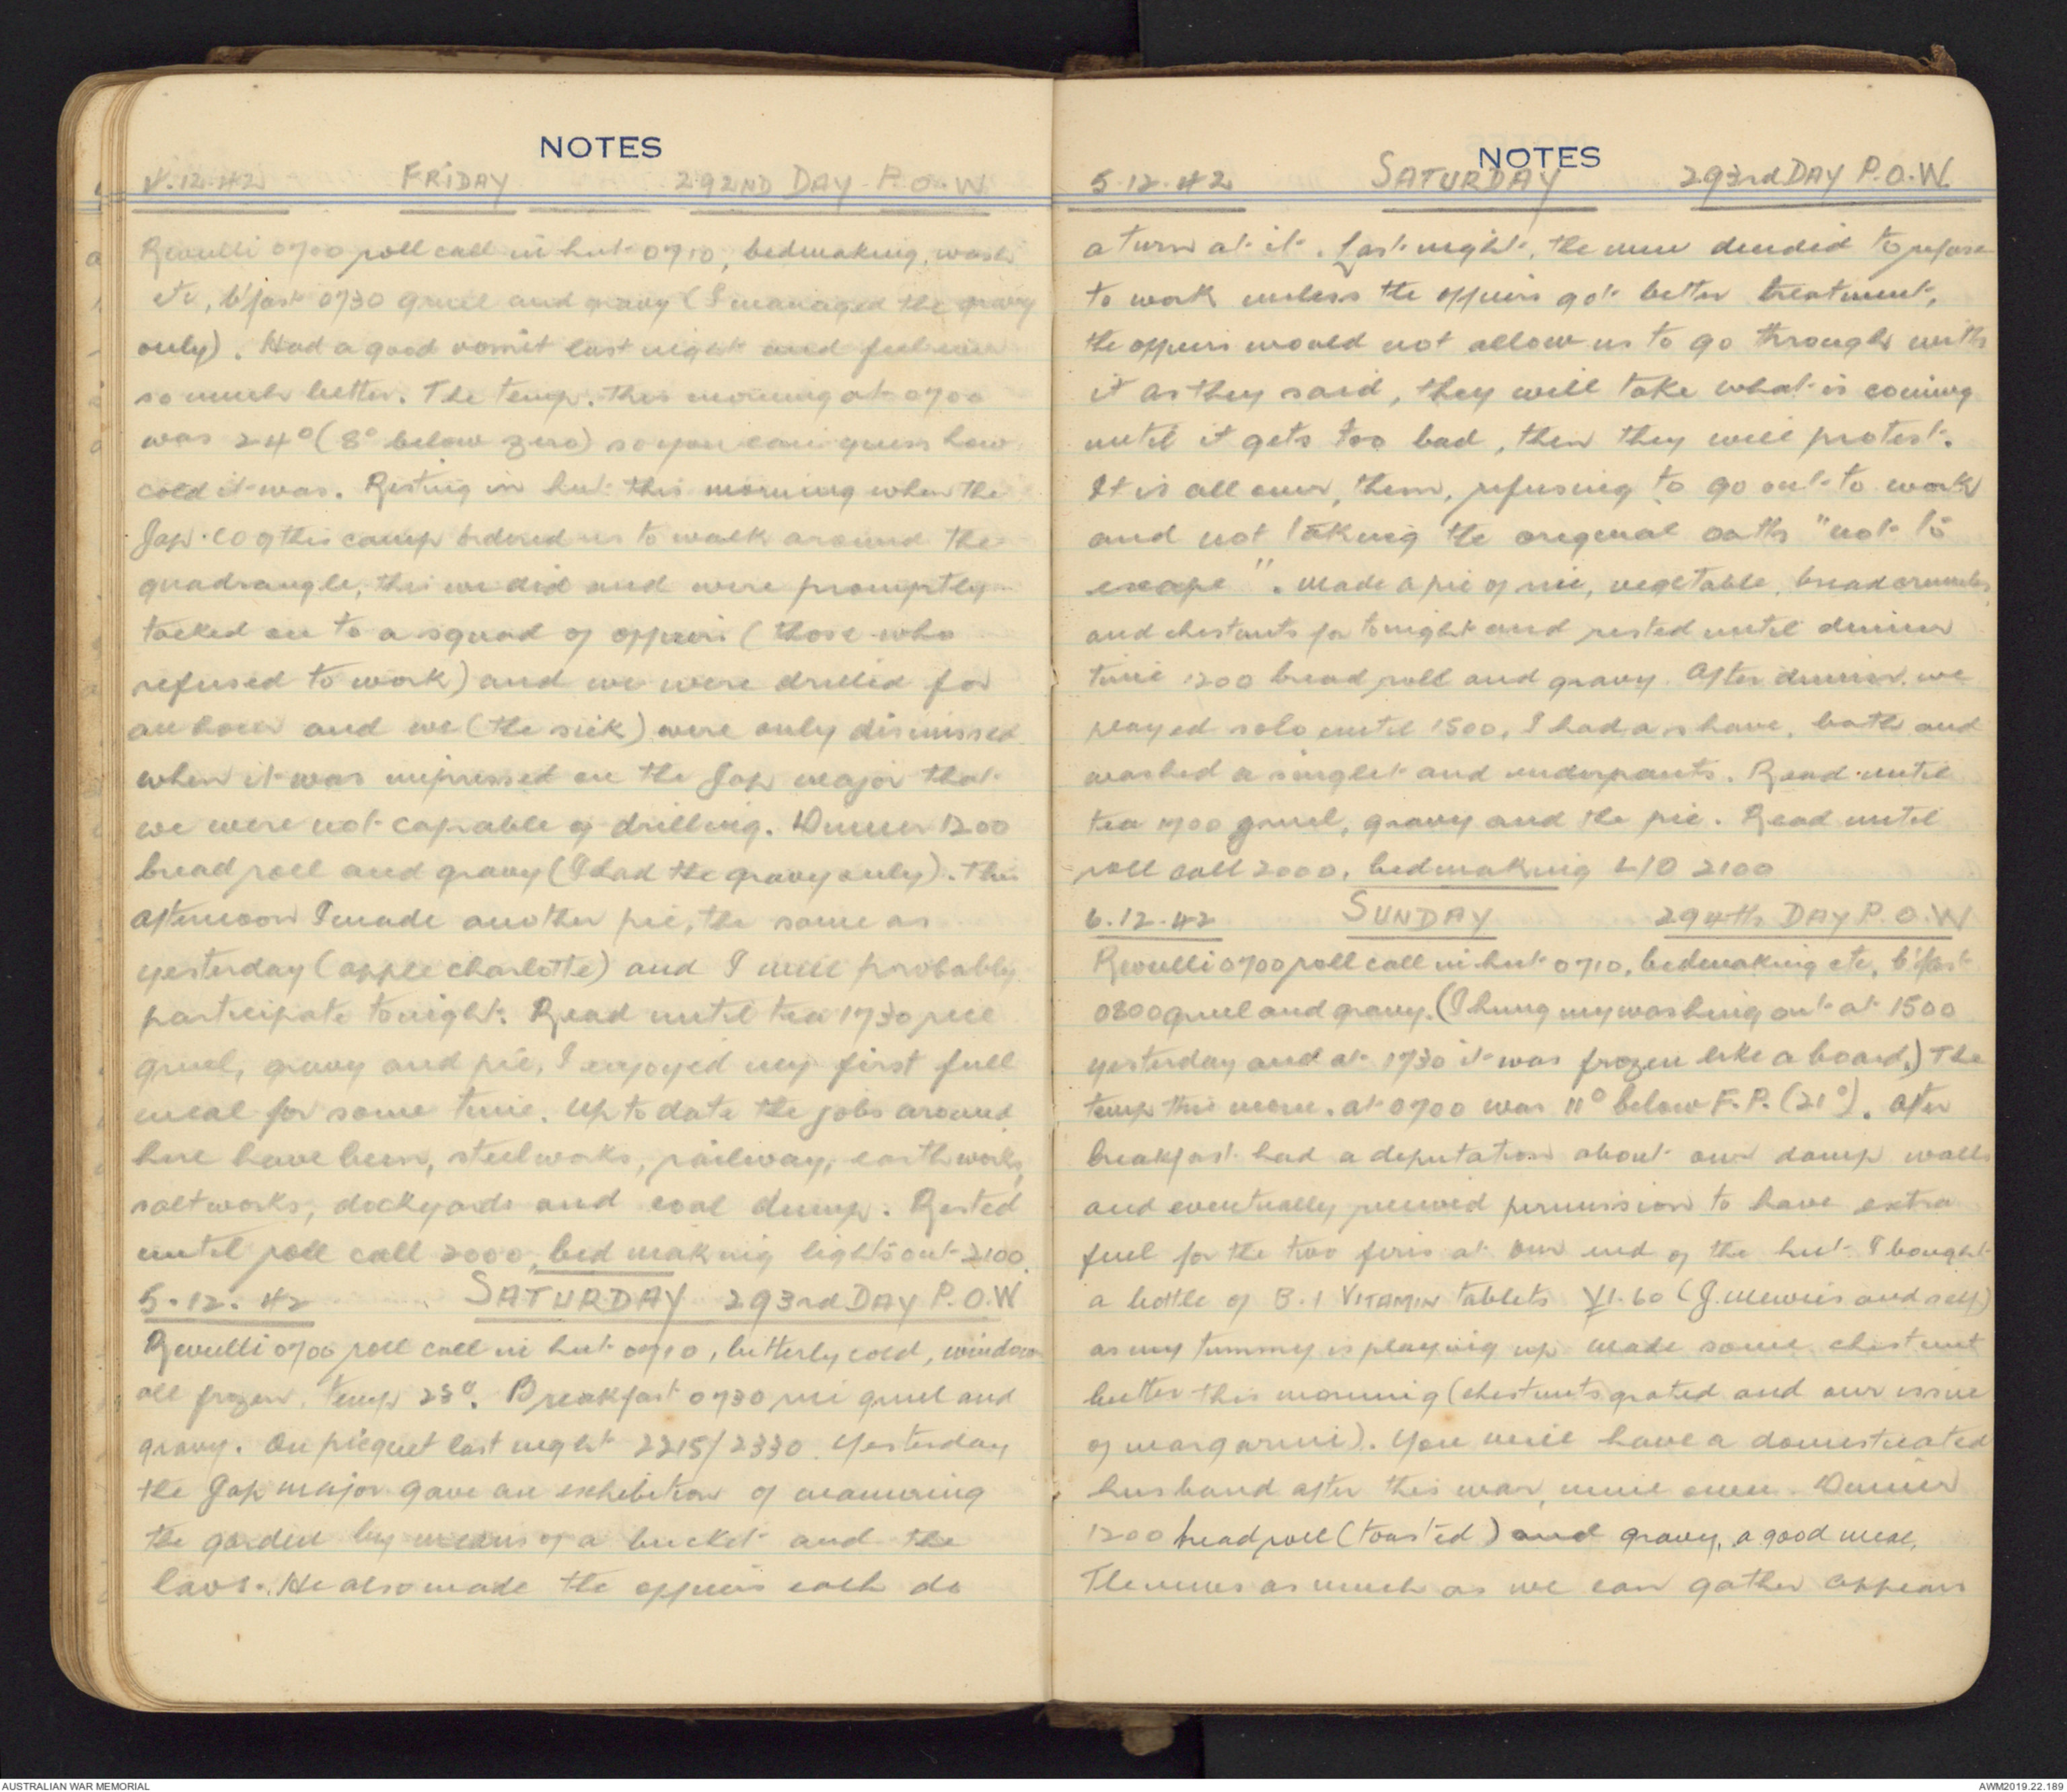 NOTES
4.12.42 FRIDAY 292ND DAY P.O.W.
Revulli 0700 roll call in hut 0710, bedmaking, wash
etc, b'fast 0730 gruel and gravy (I managed the gravy
only). Had a good vomit last night and feel ever
so much better. The temp. this morning at 0700
was 24° (8° below zero) so you can guess how
cold it was. Resting in hut this morning when the
Jap. CO of this camp ordered us to walk around the
quadrangle, this we did and were promptly
tacked on to a squad of officers (those who
refused to work) and we were drilled for
an hour and we (the sick) were only dismissed
when it was impressed on the Jap major that
we were not capable of drilling. Dinner 1200
bread roll and gravy (I had the gravy only). This
afternoon I made another pie, the same as
yesterday (apple charlotte) and I will probably
participate tonight. Read until tea 1730 rice
gruel, gravy and pie, I enjoyed my first full
meal for some time. Up to date the jobs around
here have been, steelworks, railway, earthworks,
saltworks, dockyards and coal dump. Rested
until roll call 2000, bed making lights out 2100.
5.12.42 SATURDAY 293rd DAY P.O.W
Revulli 0700 roll call in hut 0710, bitterly cold, windows
all frozen, temp 23°. Breakfast 0730 rice gruel and
gravy. On picquet last night 2215/2330. Yesterday
the Jap major gave an exhibition of manuring
the garden by means of a bucket and the
lavs. He also made the officers each do
NOTES
5.12.42 SATURDAY 293rd DAY P.O.W.
a turn at it. Last night, the men decided to refuse
to work unless the officers got better treatment,
the officers would not allow us to go through with
it as they said, they will take what is coming
until it gets too bad, then they will protest.
It is all over, them, refusing to go out to work
and not taking the original oath "not to
escape". Made a pie of rice, vegetable, breadcrumbs,
and chestnuts for tonight and rested until dinner
time 1200 bread roll and gravy. After dinner we
played solo until 1500, I had a shave, bath and
washed a singlet and underpants. Read until
tea 1700 gruel, gravy and the pie. Read until
roll call 2000, bedmaking L/O 2100
6.12.42 SUNDAY 294th DAY P.O.W
Revulli 0700 roll call in hut 0710, bedmaking etc, b'fast
0800 gruel and gravy. (I hung my washing out at 1500
yesterday and at 1730 it was frozen like a board.) The
temp this morn. at 0700 was 11° below F.P. (21°). After
breakfast had a deputation about our damp walls
and eventually received permission to have extra
fuel for the two fires at our end of the hut. I bought
a bottle of B.1 VITAMIN tablets ¥1.60 (J. and self)
as my tummy is playing up. Made some chestnut
butter this morning (chestnuts grated and our issue
of margarine). You will have a domesticated
husband after this war, mine own. Dinner
1200 bread roll (toasted) and gravy, a good meal,
The news as much as we can gather appears
AUSTRALIAN WAR MEMORIAL
AWM2019.22.189